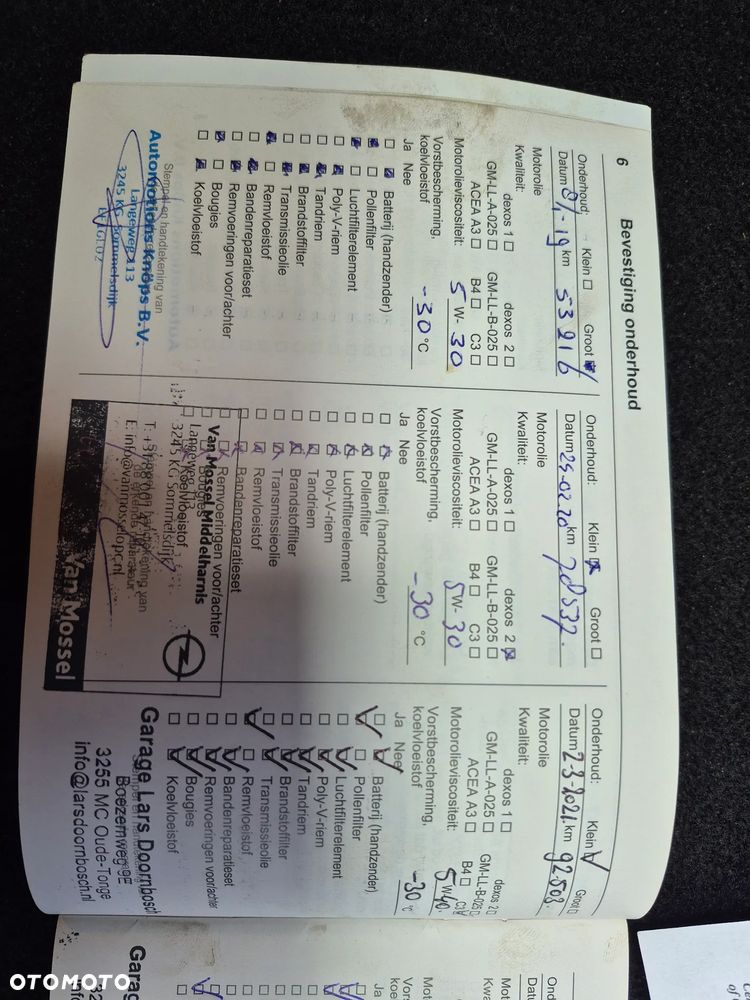 6
Bevestiging onderhoud
Onderhoud: Klein Groot
Datum 8/1-19 km 53216
Motorolie
Kwaliteit:
dexos 1 dexos 2
GM-LL-A-025 GM-LL-B-025
ACEA A3 B4 C3
Motorolieviscositeit: 5 W- 30
Vorstbescherming,
koelvloeistof -30 °C
Ja Nee
Batterij (handzender)
Pollenfilter
Luchtfilterelement
Poly-V-riem
Tandriem
Brandstoffilter
Transmissieolie
Remvloeistof
Bandenreparatieset
Remvoeringen voor/achter
Bougies
Koelvloeistof
Stempel en handtekening van
Automotions Knöps B.V.
Langeweg 113
3245 KG Sommelsdijk
Onderhoud: Klein Groot
Datum 25-02-20 km 78537.
Motorolie
Kwaliteit:
dexos 1 dexos 2
GM-LL-A-025 GM-LL-B-025
ACEA A3 B4 C3
Motorolieviscositeit: 5 W- 30
Vorstbescherming,
koelvloeistof -30 °C
Ja Nee
Batterij (handzender)
Pollenfilter
Luchtfilterelement
Poly-V-riem
Tandriem
Brandstoffilter
Transmissieolie
Remvloeistof
Bandenreparatieset
Remvoeringen voor/achter
Van Mossel Middelharnis
Langeweg 113
3245 KG Sommelsdijk
Koelvloeistof
Van Mossel
Onderhoud: Klein Groot
Datum 2-3-2021. km 92508.
Motorolie
Kwaliteit:
dexos 1 dexos 2
GM-LL-A-025 GM-LL-B-025
ACEA A3 B4 C3
Motorolieviscositeit: 5 W 40.
Vorstbescherming,
koelvloeistof -30 °C
Ja Nee
Batterij (handzender)
Pollenfilter
Luchtfilterelement
Poly-V-riem
Tandriem
Brandstoffilter
Transmissieolie
Remvloeistof
Bandenreparatieset
Remvoeringen voor/achter
Bougies
Koelvloeistof
Garage Lars Doornbosch
Boezemweg 9E
3255 MC Oude-Tonge
info@larsdoornbosch.nl
Ja
Garag
OTOMOTO